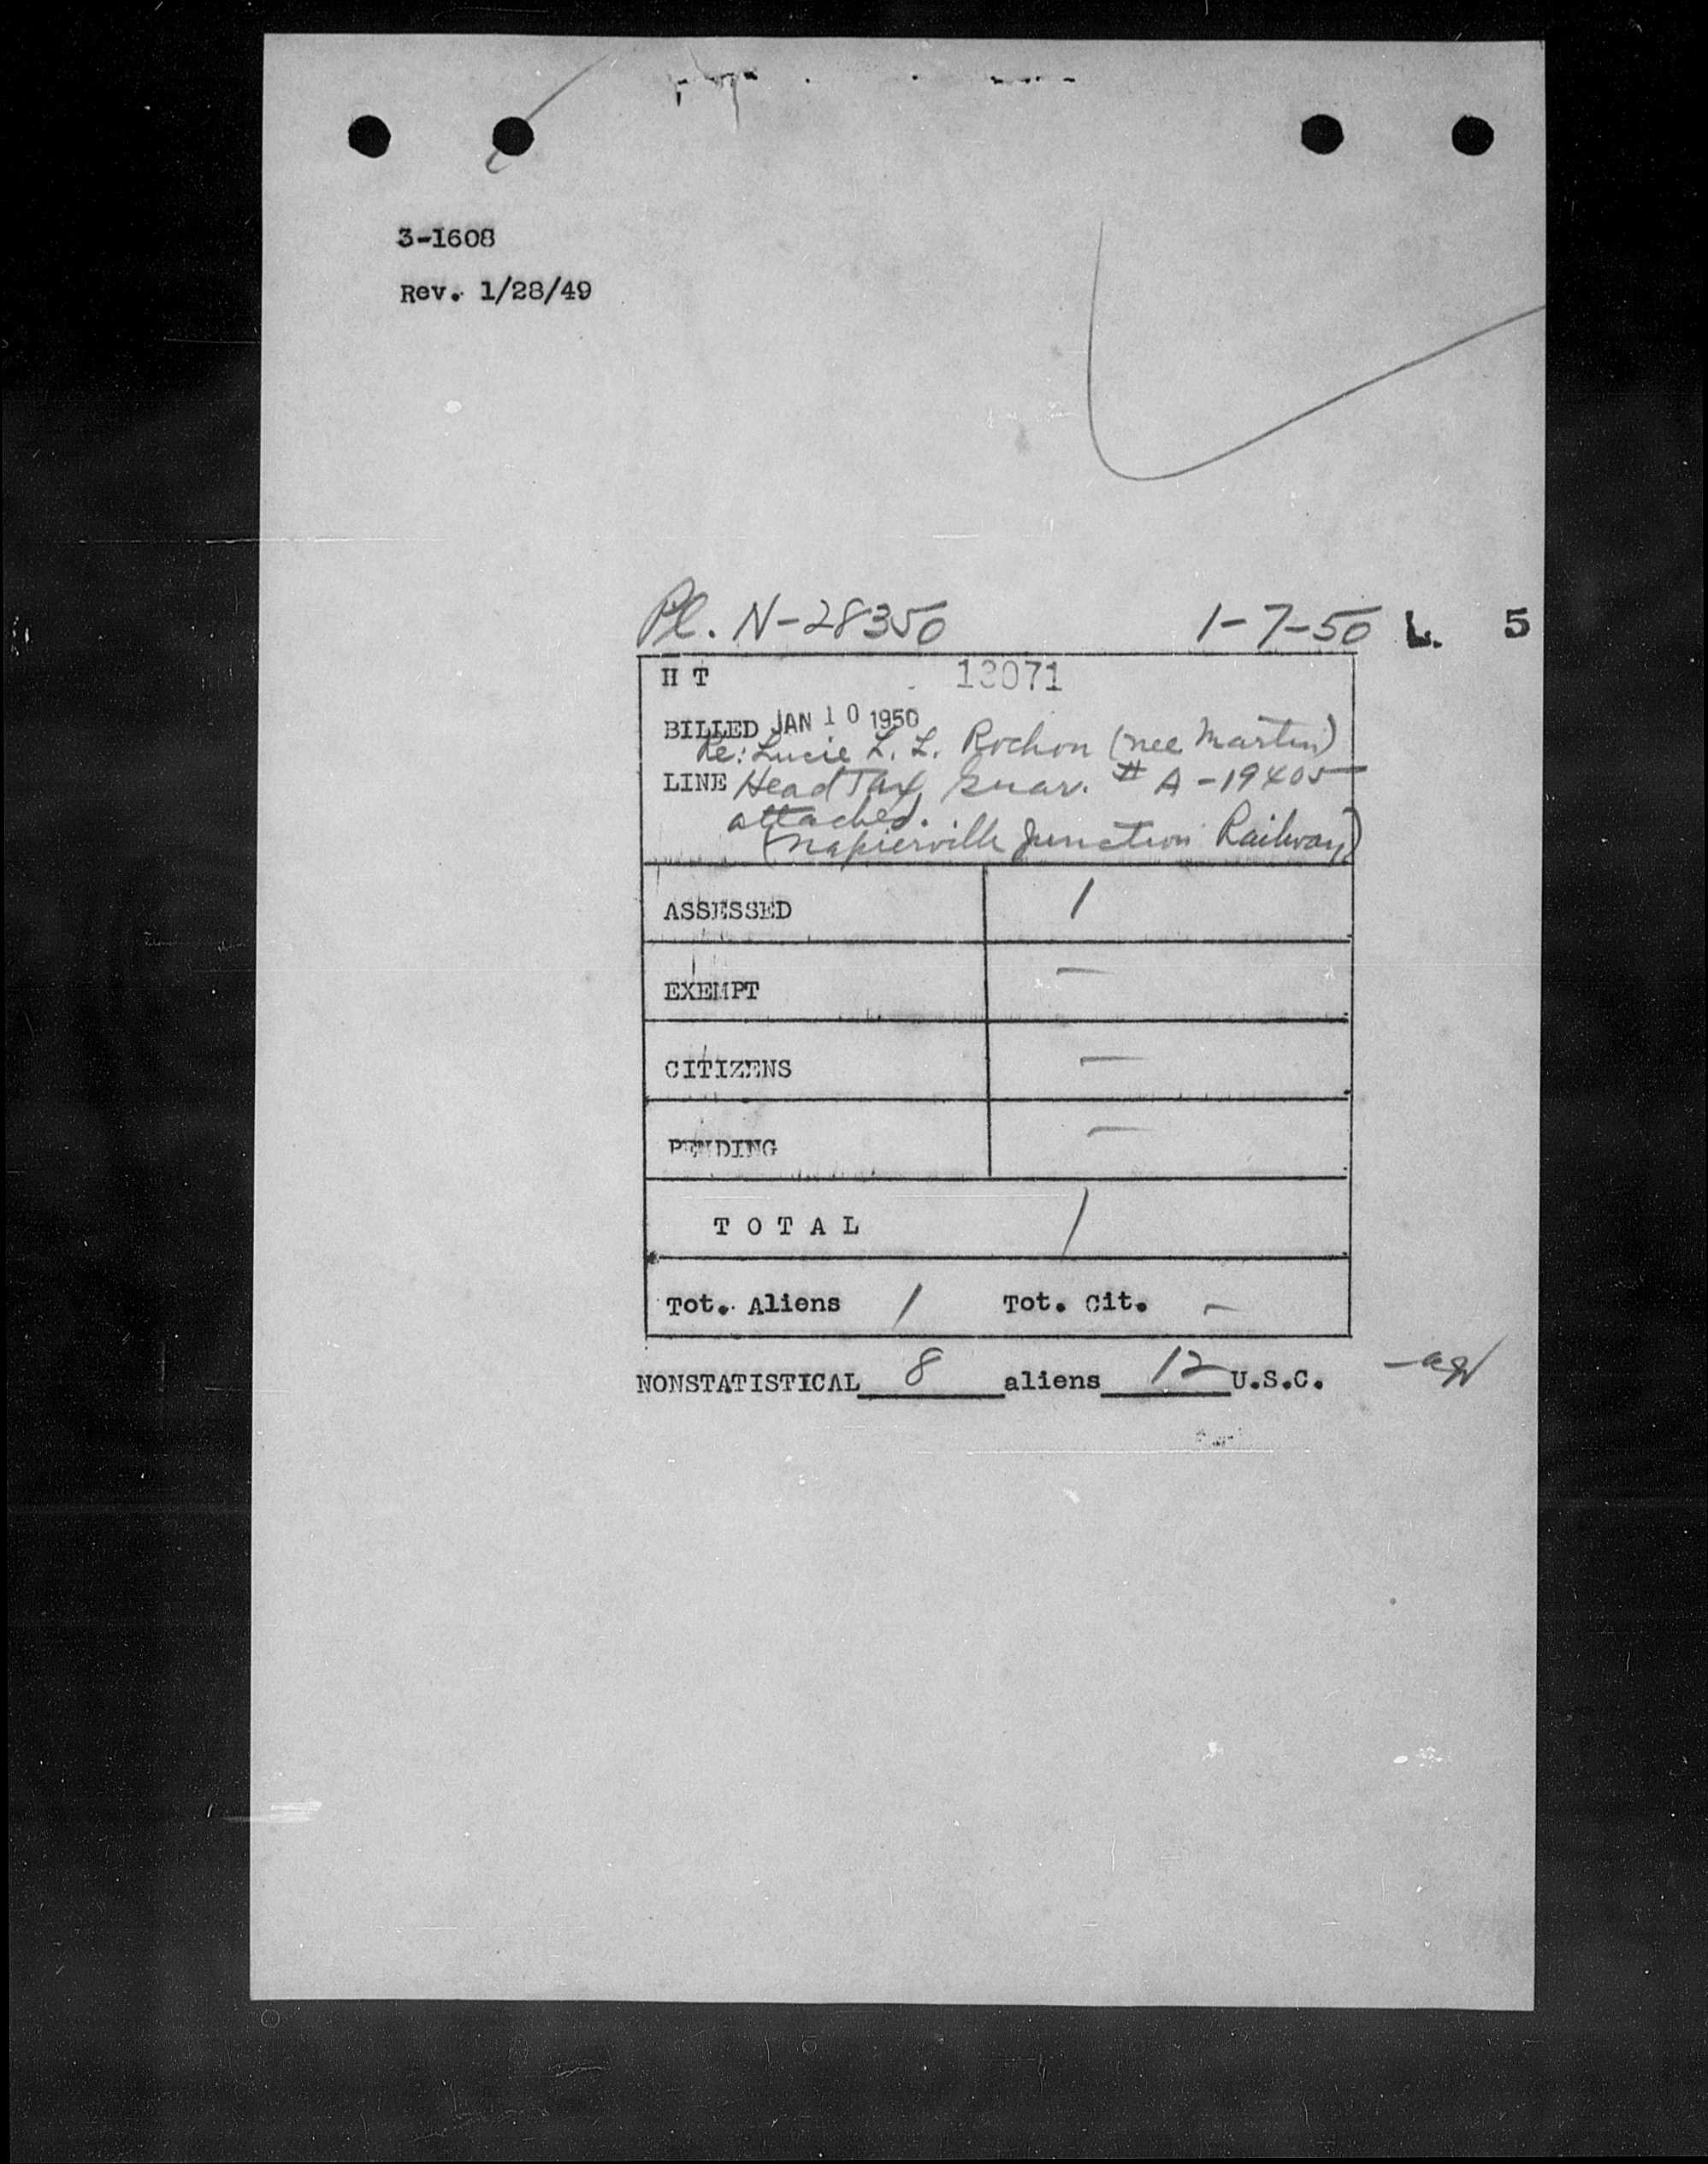 3-1608
Rev. 1/28/49
Pl. N-28350 1-7-50 L. 5
H T 13071
BILLED JAN 10 1950
Re: Lucie L. L. Rochon (nee Martin)
LINE Head Tax Guar. # A-19405
attached.
(Napierville Junction Railway)
ASSESSED 1
EXEMPT —
CITIZENS —
PENDING —
T O T A L 1
Tot. Aliens 1 Tot. Cit. —
NONSTATISTICAL 8 aliens 12 U.S.C.